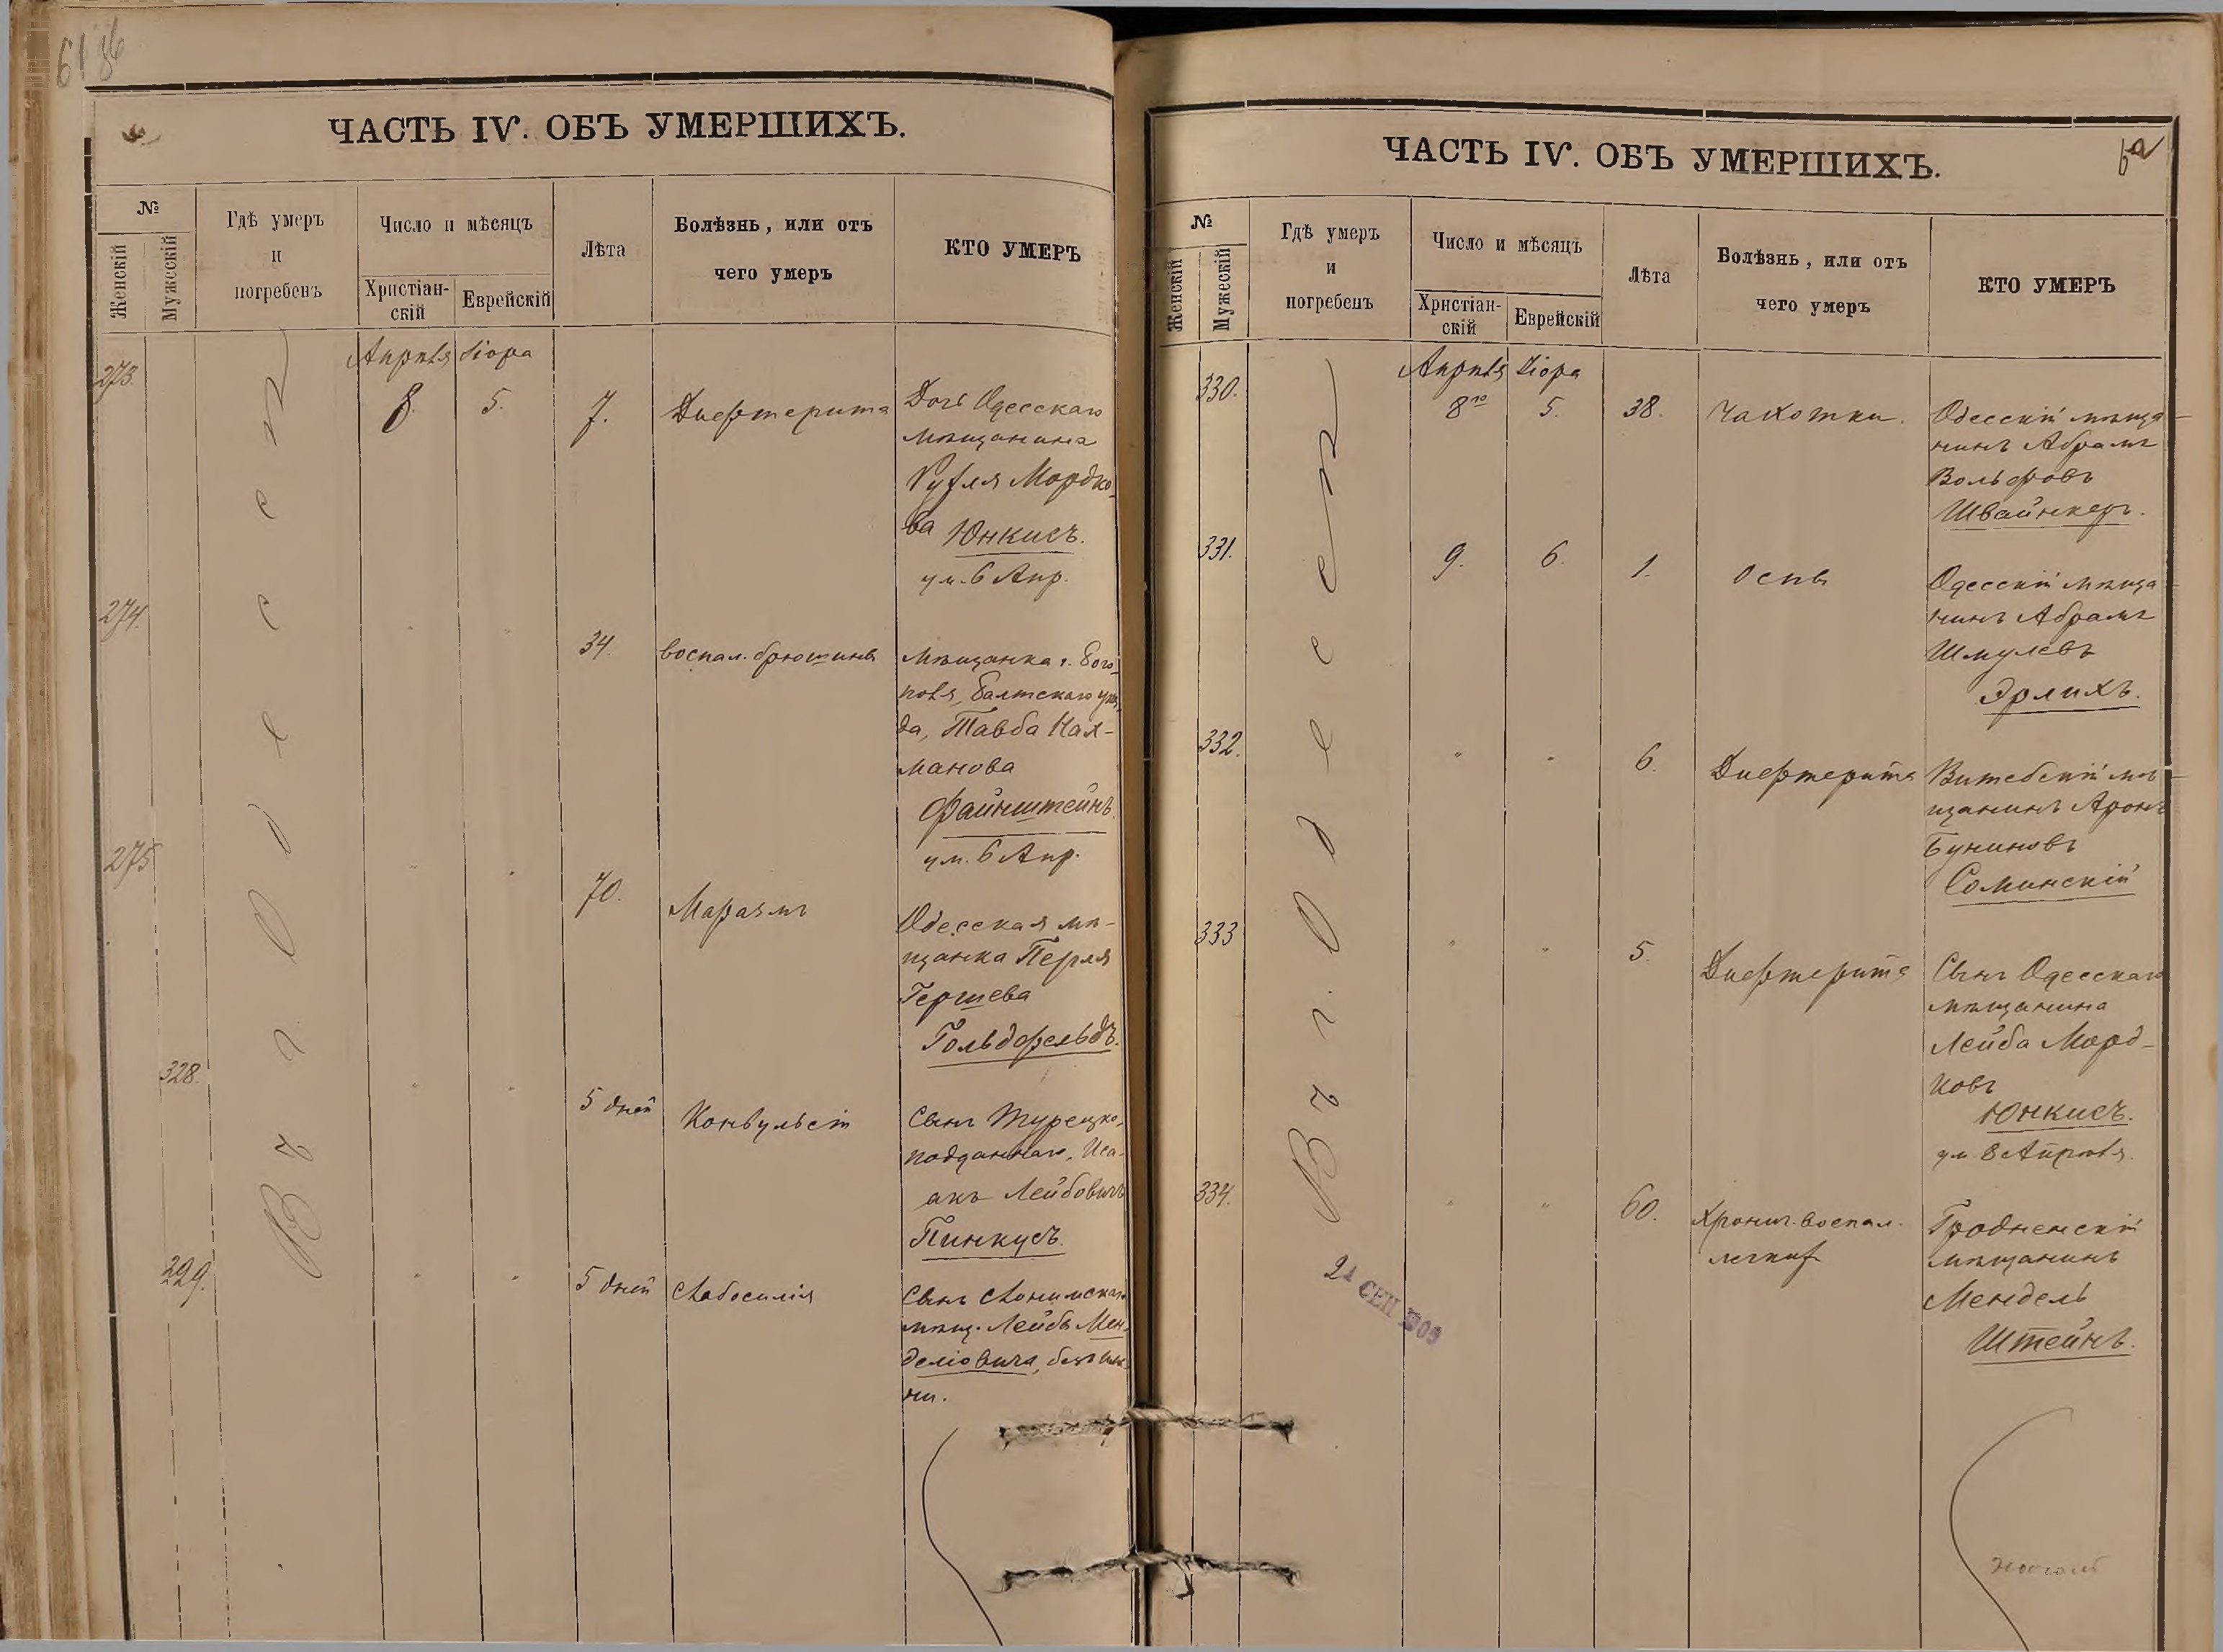 61
ЧАСТЬ IV. ОБЪ УМЕРШИХЪ.
№
Женскій
Мужескій
Гдѣ умеръ
и
погребенъ
Число и мѣсяцъ
Христіан-
скій
Еврейскій
Лѣта
Болѣзнь, или отъ
чего умеръ
КТО УМЕРЪ
Въ г. Одессѣ
Апрѣля Ііора
273.
8. 5. 7. Дифтерита
Дочь Одесскаго
мѣщанина
Рухля Мордко-
ва Юнкисъ.
ум. 6 Апр.
274.
" " 34. воспал. брюшины
Мѣщанка г. Бого-
поля, Балтскаго уѣз-
да, Тавба Нах-
манова
Файнштейнъ.
ум. 6 Апр.
275
" " 70. Маразмъ
Одесская мѣ-
щанка Перля
Гершева
Гольдфельдъ.
328.
" " 5 дней Конвульсіи
Сынъ Турецко-
подданнаго, Иса-
акъ Лейбовичъ
Пинкусъ.
299.
" " 5 дней Слабосилія
Сынъ Слонимскаго
мѣщ. Лейбы Мен-
деліовича, безъ име-
ни.
ЧАСТЬ IV. ОБЪ УМЕРШИХЪ.
62
№
Женскій
Мужескій
Гдѣ умеръ
и
погребенъ
Число и мѣсяцъ
Христіан-
скій
Еврейскій
Лѣта
Болѣзнь, или отъ
чего умеръ
КТО УМЕРЪ
Въ г. Одессѣ
Апрѣля Ііора
330.
8го 5. 38. Чахотки.
Одесскій мѣща-
нинъ Абрамъ
Вольфовъ
Швайнкеръ.
331.
9. 6. 1. Оспы
Одесскій мѣща-
нинъ Абрамъ
Шмулевъ
Эрлихъ.
332.
" " 6. Дифтерита
Витебскій мѣ-
щанинъ Аронъ
Буниновъ
Соминскій
333
" " 5. Дифтерита
Сынъ Одесскаго
мѣщанина
Лейба Морд-
ковъ
Юнкисъ.
ум. 8 Апрѣля.
334.
" " 60. Хронич. воспал.
легкихъ
Гродненскій
мѣщанинъ
Мендель
Штейнъ.
21 СЕН 1909